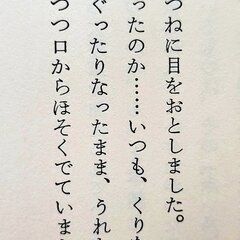 つねに目をおとしました。
ったのか……いつも、くりを
ぐったりなったまま、うれし
つつ口からほそくでていまし